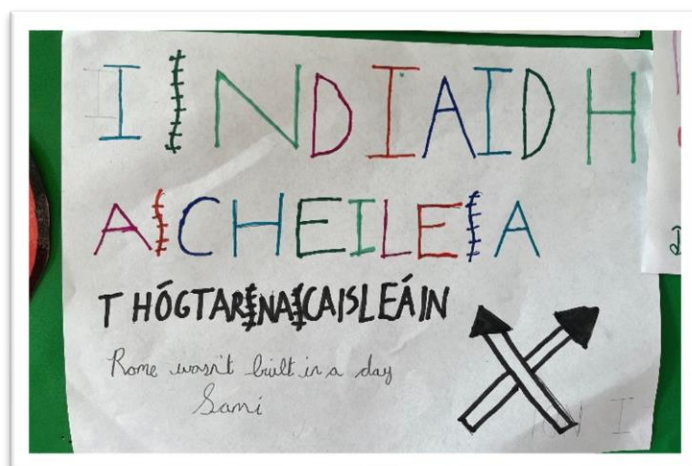 I NDIAIDH
A CHEILE A
THÓGTAR NA CAISLEÁIN
Rome wasn't built in a day
Sami